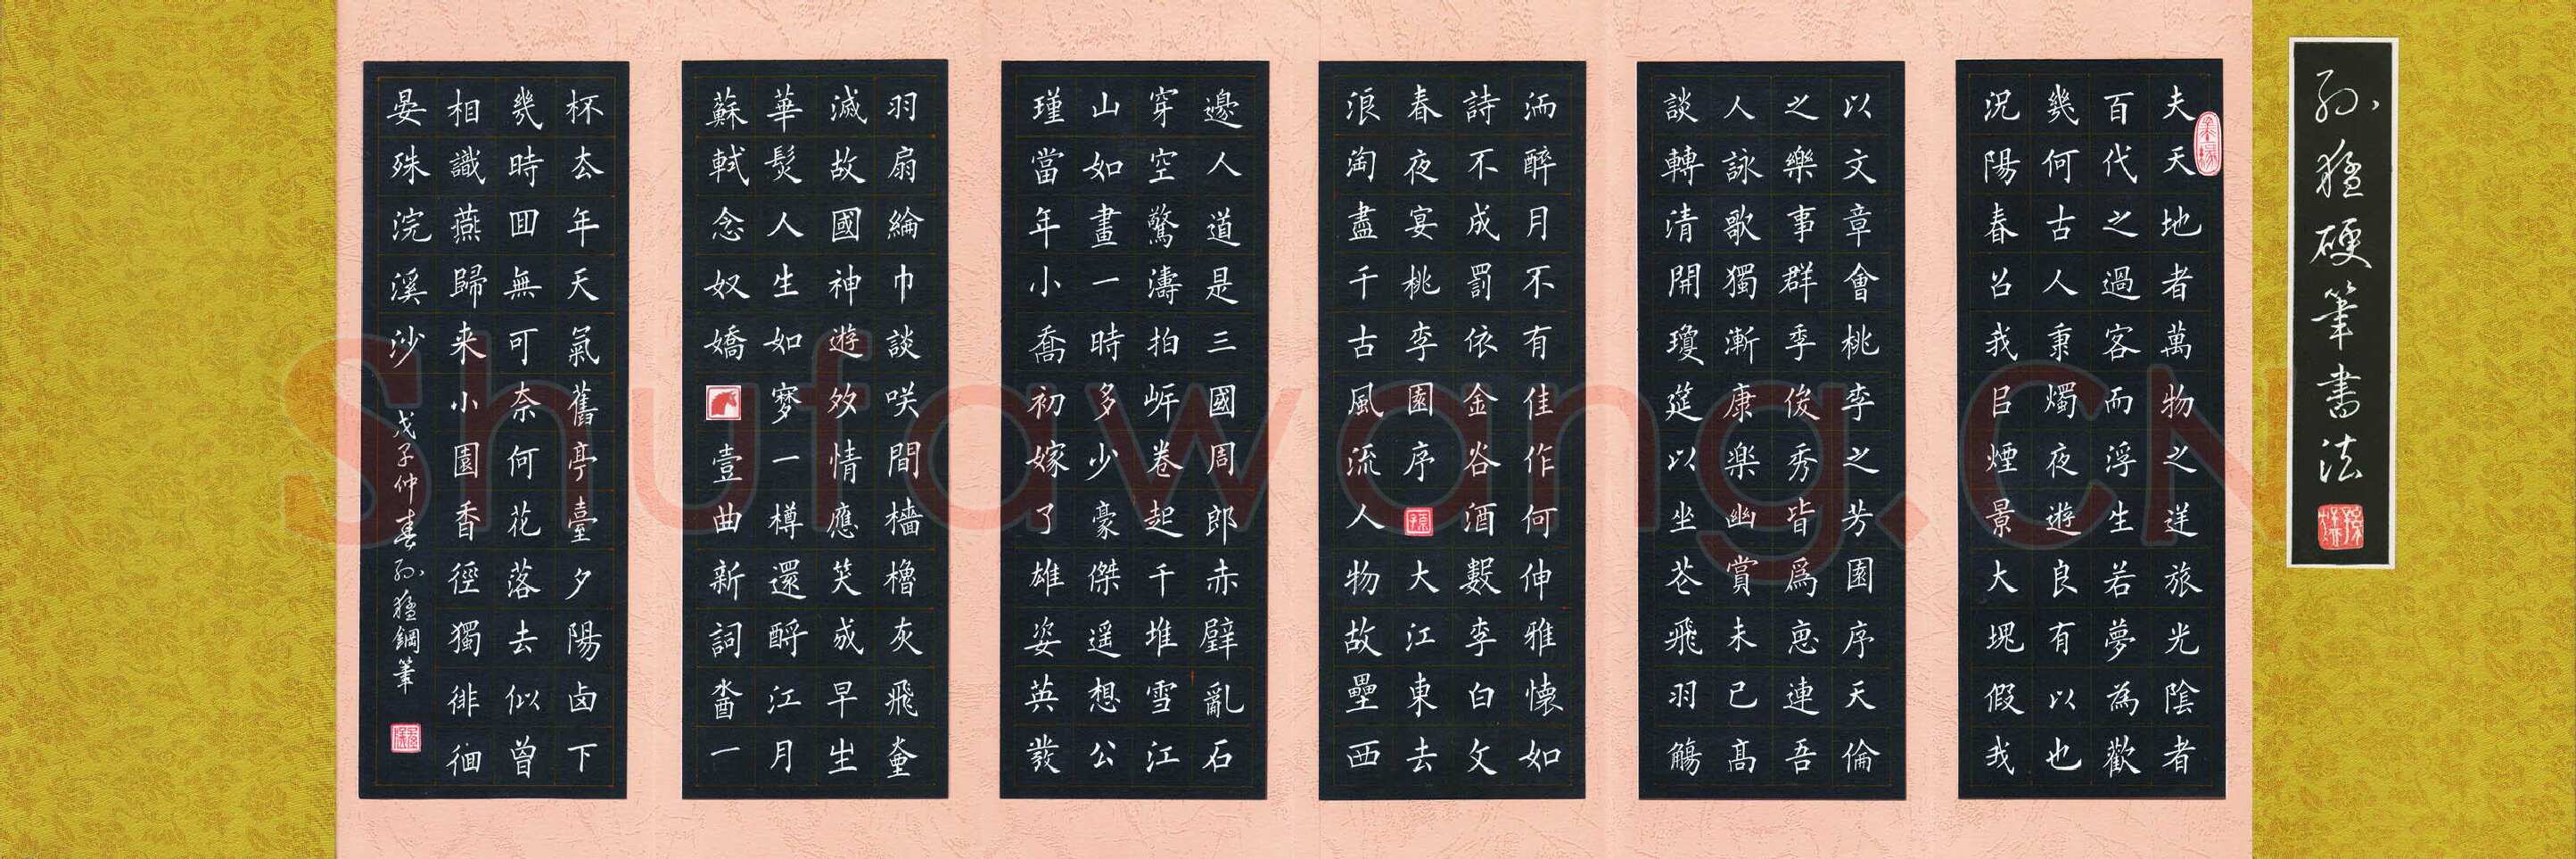 孙猛硬筆書法
夫天地者萬物之逆旅光陰者
百代之過客而浮生若夢為歡
幾何古人秉燭夜遊良有以也
況陽春召我㠯煙景大塊假我
以文章會桃李之芳園序天倫
之樂事群季俊秀皆爲恵連吾
人詠歌獨漸康樂幽賞未已高
談轉清開瓊筵以坐花飛羽觴
而醉月不有佳作何伸雅懷如
詩不成罰依金谷酒數李白文
春夜宴桃李園序大江東去
浪淘盡千古風流人物故壘西
邊人道是三國周郎赤壁亂石
穿空驚濤拍岸卷起千堆雪江
山如畫一時多少豪傑遥想公
瑾當年小喬初嫁了雄姿英發
羽扇綸巾談咲間檣櫓灰飛
滅故國神遊多情應笑我早生
華髮人生如夢一樽還酹江月
蘇軾念奴嬌壹曲新詞酒一
杯去年天氣舊亭臺夕陽西下
幾時回無可奈何花落去似曾
相識燕歸来小園香徑獨徘徊
晏殊浣溪沙
戊子仲春孙猛鋼筆
Shufawang.CN